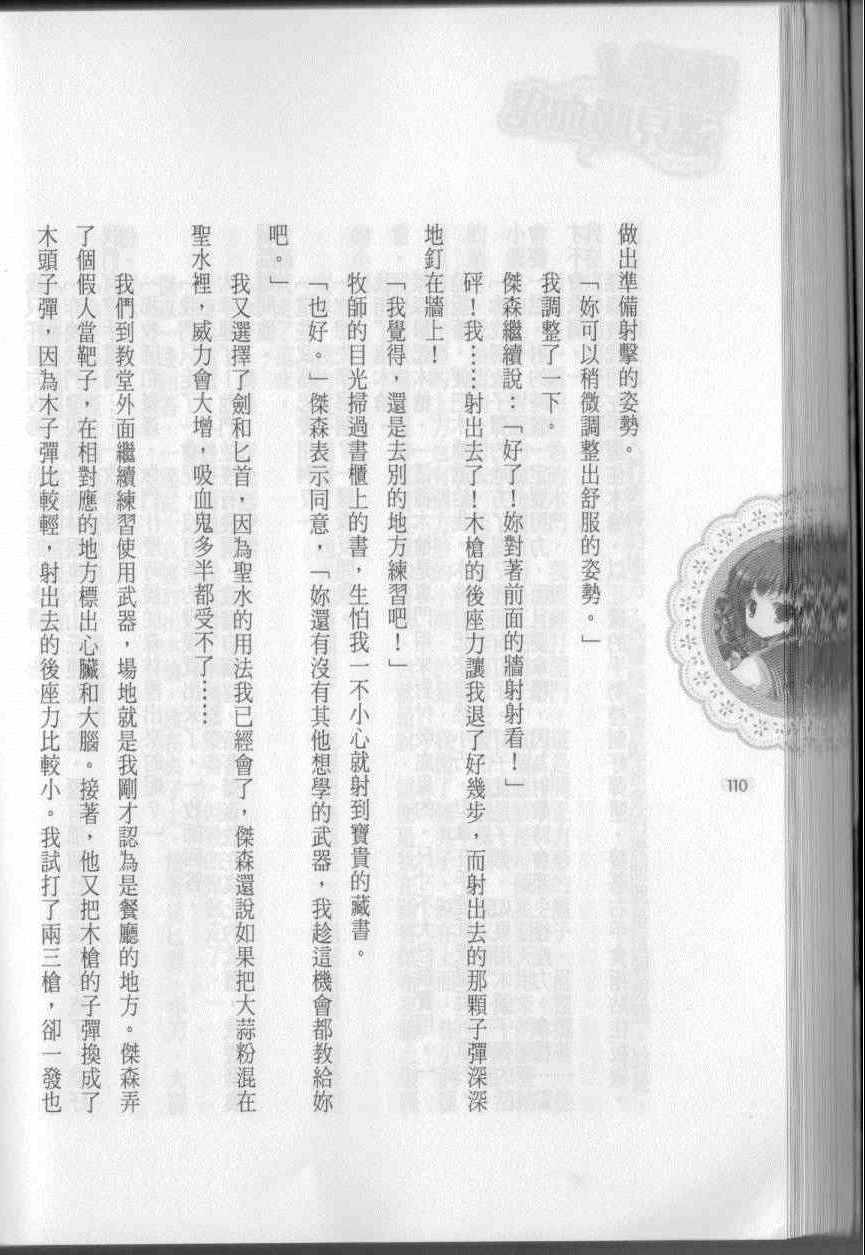 做出準備射擊的姿勢。
「妳可以稍微調整出舒服的姿勢。」
我調整了一下。
傑森繼續說：「好了！妳對著前面的牆射射看！」
砰！我……射出去了！木槍的後座力讓我退了好幾步，而射出去的那顆子彈深深
地釘在牆上！
「我覺得，還是去別的地方練習吧！」
牧師的目光掃過書櫃上的書，生怕我一不小心就射到寶貴的藏書。
「也好。」傑森表示同意，「妳還有沒有其他想學的武器，我趁這機會都教給妳
吧。」
我又選擇了劍和匕首，因為聖水的用法我已經會了，傑森還說如果把大蒜粉混在
聖水裡，威力會大增，吸血鬼多半都受不了……
我們到教堂外面繼續練習使用武器，場地就是我剛才認為是餐廳的地方。傑森弄
了個假人當靶子，在相對應的地方標出心臟和大腦。接著，他又把木槍的子彈換成了
木頭子彈，因為木子彈比較輕，射出去的後座力比較小。我試打了兩三槍，卻一發也
110